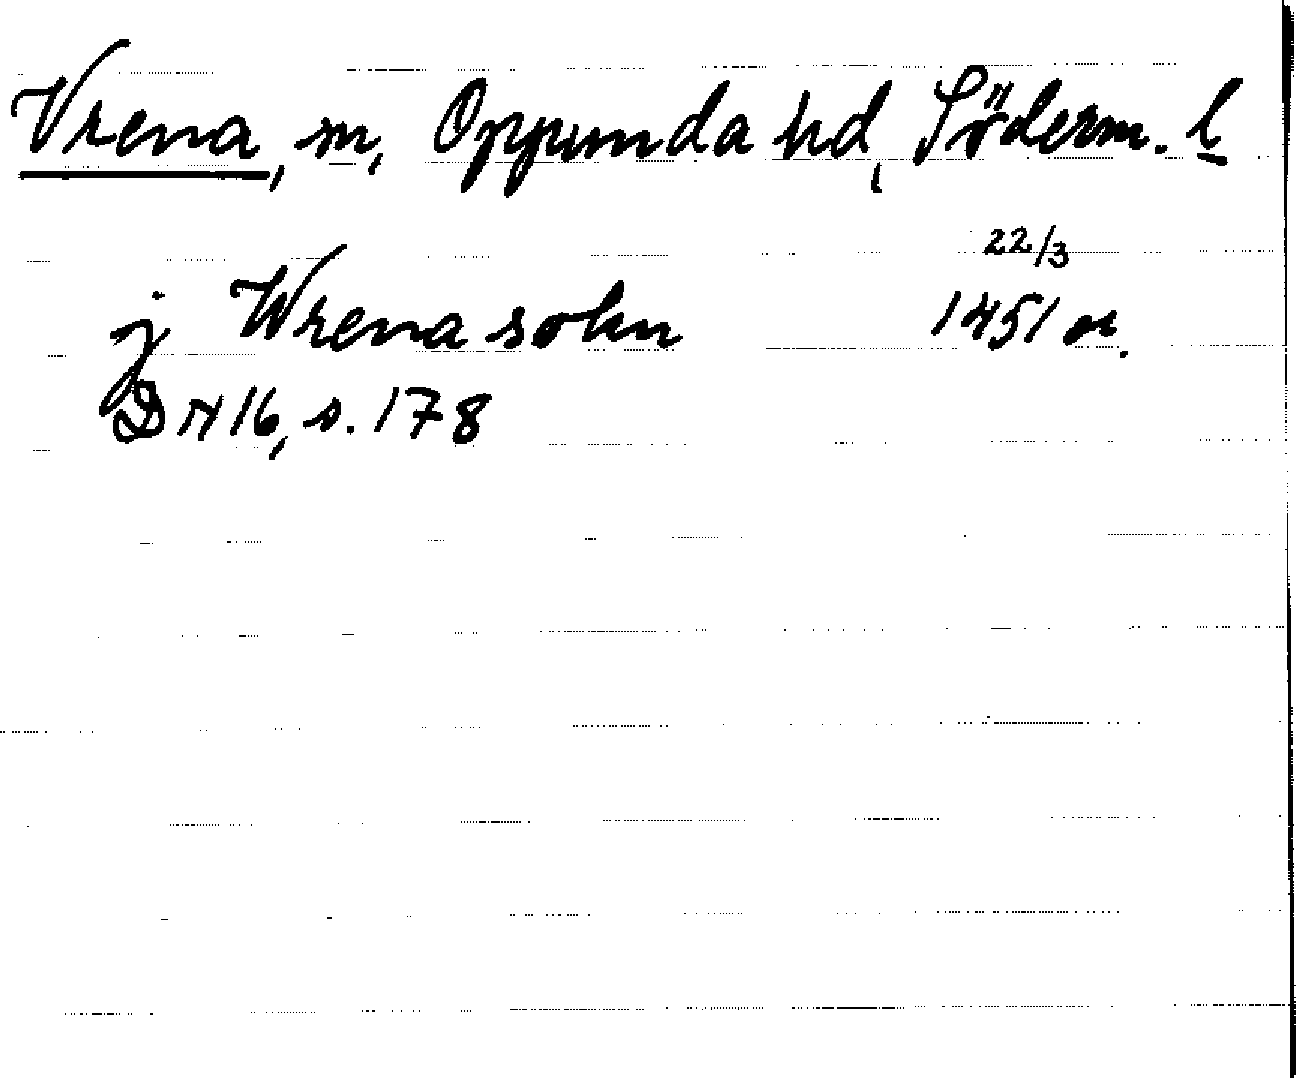 Vrena, sn, Oppunda hd, Söderm. l
22/3
j Wrena sokn 1451 or.
DN 16, s. 178